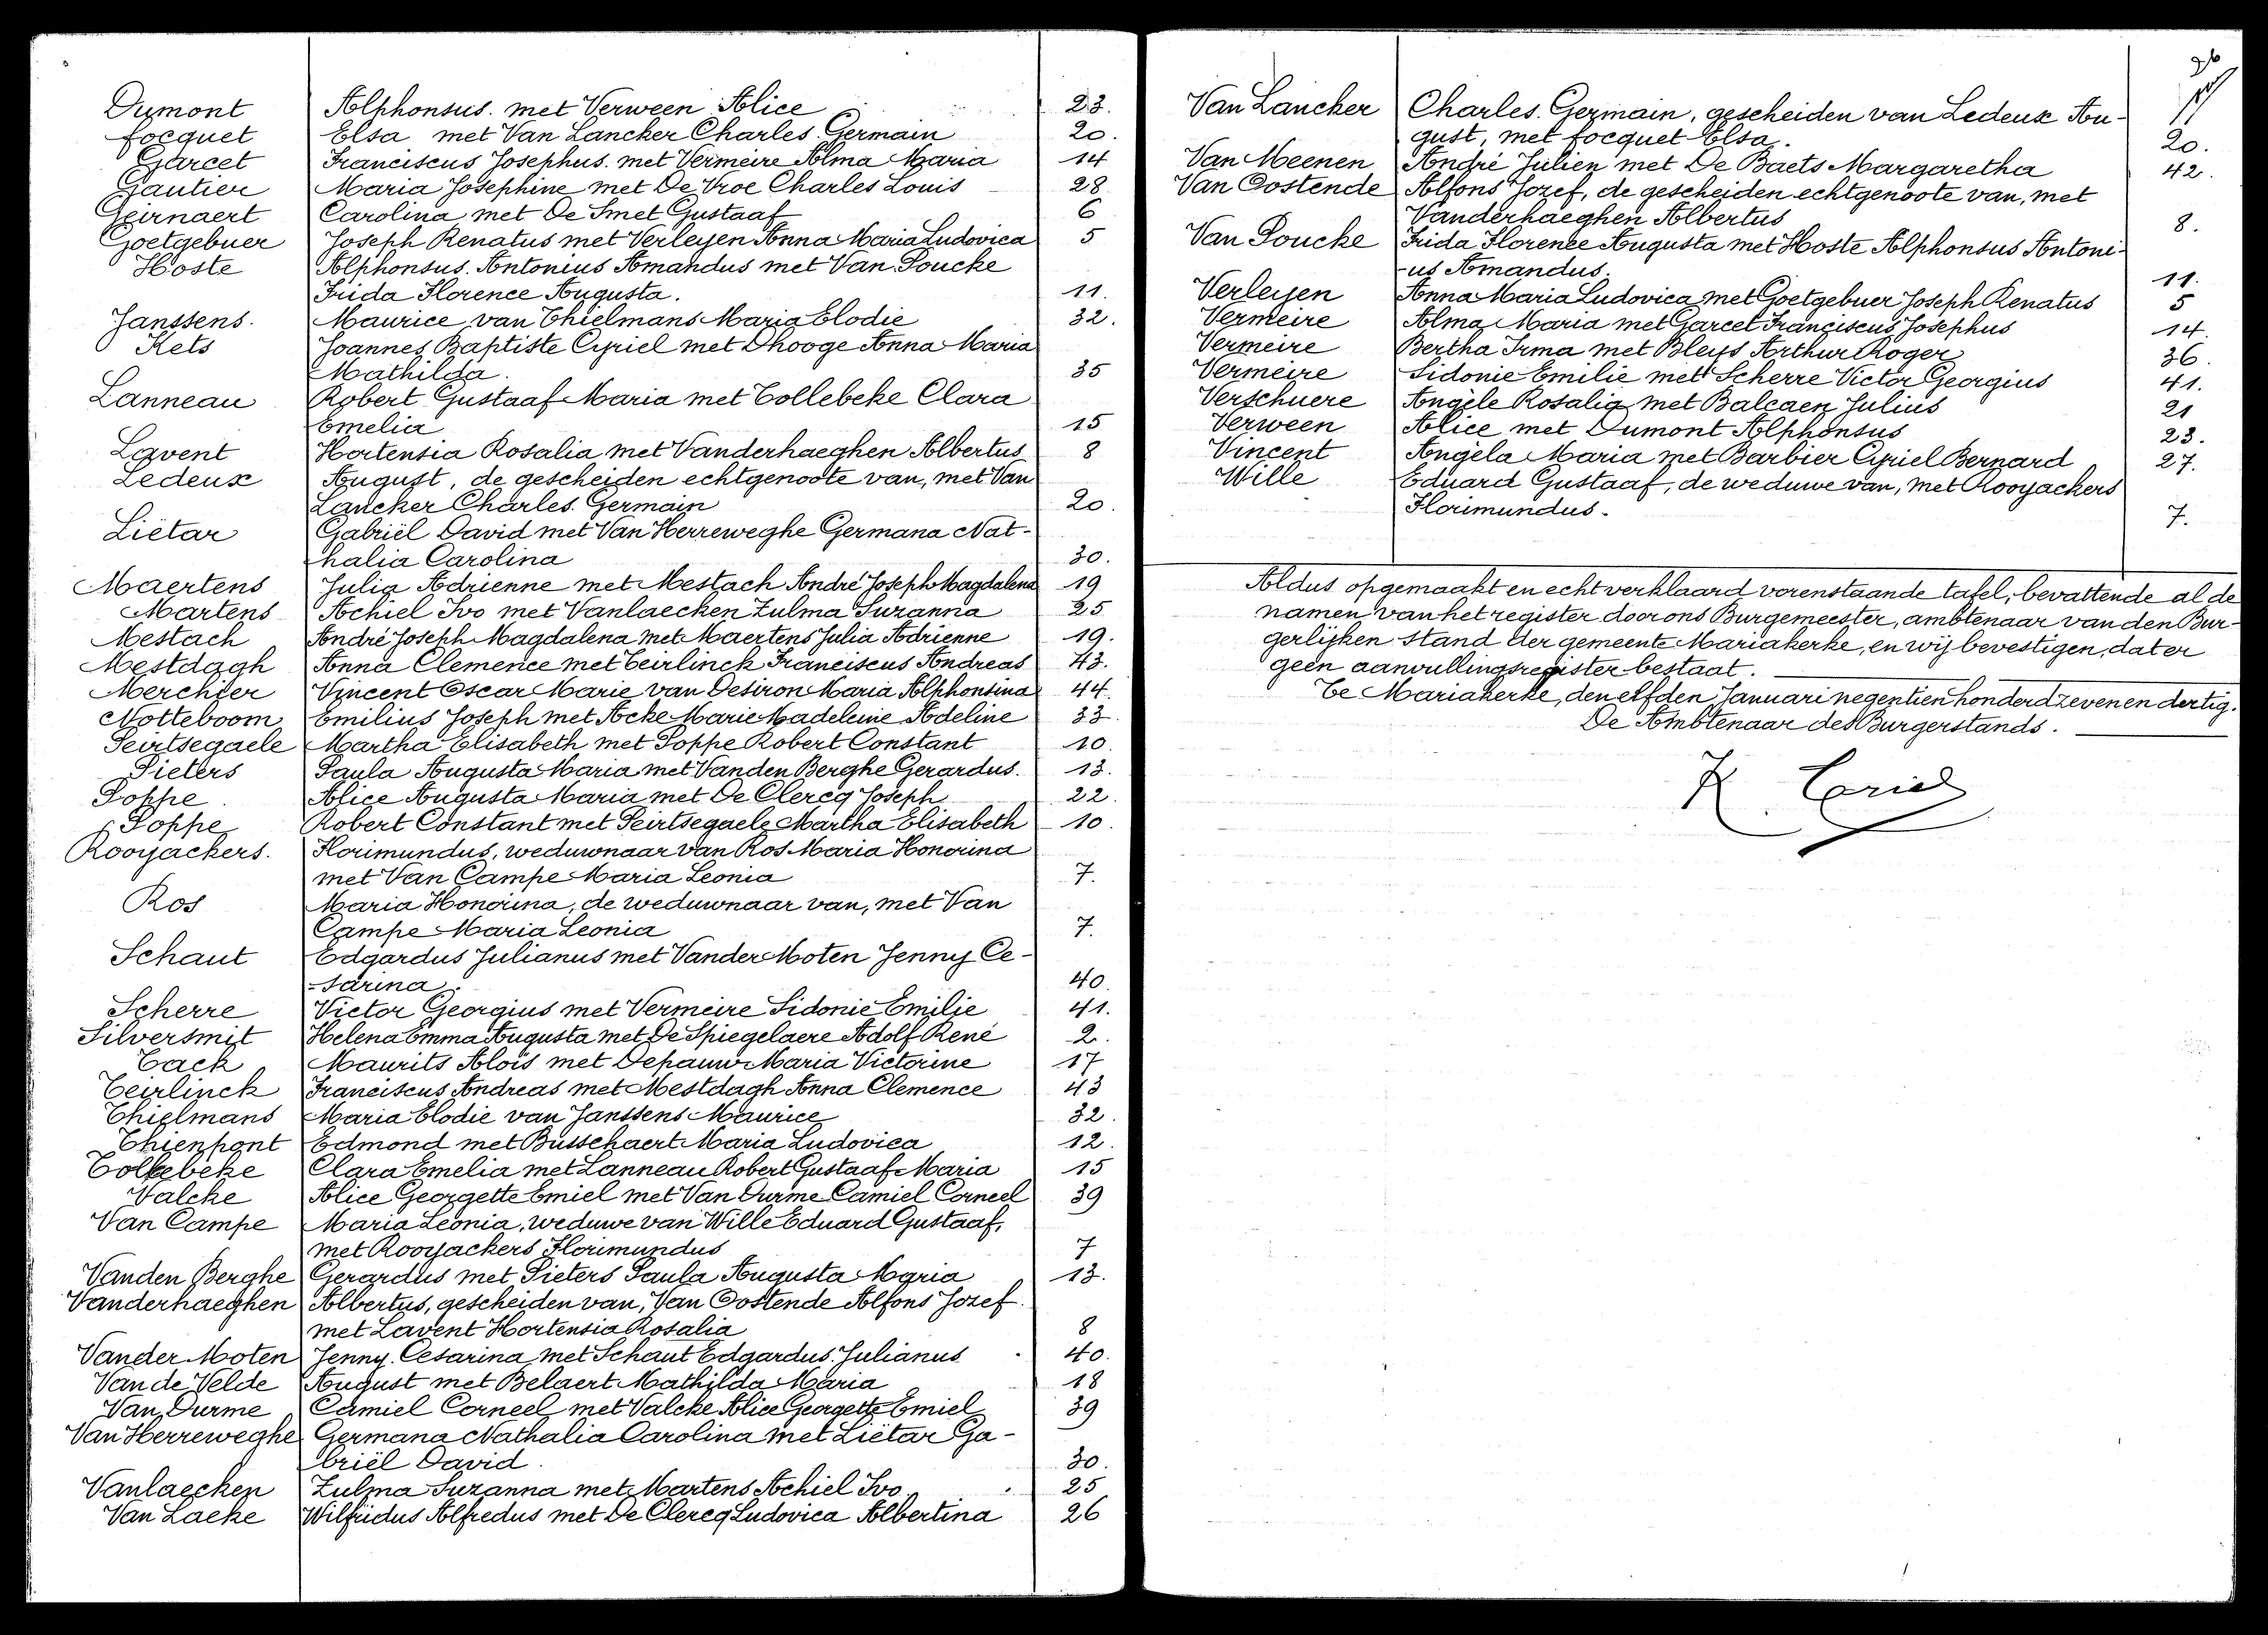 Dumont Alphonsus. met Verween Alice 23.
Focquet Elsa met Van Lancker Charles Germain 20.
Garcet Franciscus Josephus. met Vermeire Alma Maria 14
Gautier Maria Josephine met De Vroe Charles Louis 28
Geirnaert Carolina met De Smet Gustaaf 6
Goetgebuer Joseph Renatus met Verleyen Anna Maria Ludovica 5
Hoste Alphonsus. Antonius Amandus met Van Poucke
Frida Florence Augusta. 11.
Janssens. Maurice van Thielmans Maria Elodie 32.
Kets Joannes Baptiste Cyriel met Dhooge Anna Maria
Mathilda. 35
Lanneau Robert Gustaaf Maria met Tollebeke Clara
Emelia 15
Lavent Hortensia Rosalia met Vanderhaeghen Albertus 8
Ledeux August, de gescheiden echtgenoote van, met Van
Lancker Charles Germain 20.
Liëtar Gabriël David met Van Herreweghe Germana Nat-
halia Carolina 30.
Maertens Julia Adrienne met Mestach André Joseph Magdalena 19
Martens Achiel Ivo met Vanlaecken Zulma Suzanna 25
Mestach André Joseph Magdalena met Maertens Julia Adrienne 19.
Mestdagh Anna Clemence met Teirlinck Franciscus Andreas 43.
Merchier Vincent Oscar Marie van Desiron Maria Alphonsina 44.
Notteboom Emilius Joseph met Acke Marie Madeleine Adeline 33.
Peirtsegaele Martha Elisabeth met Poppe Robert Constant 10.
Pieters Paula Augusta Maria met Vanden Berghe Gerardus. 13.
Poppe. Alice Augusta Maria met De Clercq Joseph 22.
Poppe Robert Constant met Peirtsegaele Martha Elisabeth 10.
Rooyackers. Florimundus, weduwnaar van Ros Maria Honorina
met Van Campe Maria Leonia 7.
Ros Maria Honorina, de weduwnaar van, met Van
Campe Maria Leonia 7.
Schaut Edgardus Julianus met Vander Moten Jenny Ce-
-sarina. 40.
Scherre Victor Georgius met Vermeire Sidonie Emilie 41.
Silversmit Helena Emma Augusta met De Spiegelaere Adolf René 2.
Tack Maurits Aloïs met Depauw Maria Victorine 17
Teirlinck Franciscus Andreas met Mestdagh Anna Clemence 43
Thielmans Maria Elodie van Janssens Maurice 32.
Thienpont Edmond met Busschaert Maria Ludovica 12.
Tollebeke Clara Emelia met Lanneau Robert Gustaaf Maria 15
Valcke Alice Georgette Emiel met Van Durme Camiel Corneel 39
Van Campe Maria Leonia, weduwe van Wille Eduard Gustaaf,
met Rooyackers Florimundus 7
Vanden Berghe Gerardus met Pieters Paula Augusta Maria 13.
Vanderhaeghen Albertus, gescheiden van, Van Oostende Alfons Jozef.
met Lavent Hortensia Rosalia 8
Vander Moten Jenny. Cesarina met Schaut Edgardus Julianus 40.
Van de Velde August met Belaert Mathilda Maria 18
Van Durme Camiel Corneel met Valcke Alice Georgette Emiel 39
Van Herreweghe Germana Nathalia Carolina met Liëtar Ga-
briël David. 30.
Vanlaecken Zulma Suzanna met Martens Achiel Ivo 25
Van Laeke Wilfridus Alfredus met De Clercq Ludovica Albertina 26
Van Lancker Charles. Germain, gescheiden van Ledeux Au-
gust, met Focquet Elsa. 20.
Van Meenen André Julien met De Baets Margaretha 42.
Van Oostende Alfons Jozef, de gescheiden echtgenoote van, met
Vanderhaeghen Albertus 8.
Van Poucke Frida Florence Augusta met Hoste Alphonsus Antoni-
-us Amandus. 11.
Verleyen Anna Maria Ludovica met Goetgebuer Joseph Renatus 5
Vermeire Alma Maria met Garcet Franciscus Josephus 14.
Vermeire Bertha Irma met Bleys Arthur Roger 36.
Vermeire Sidonie Emilie met Scherre Victor Georgius 41.
Verschuere Angèle Rosalia met Balcaen Julius 21
Verween Alice met Dumont Alphonsus 23.
Vincent Angèla Maria met Barbier Cyriel Bernard 27.
Wille Eduard Gustaaf, de weduwe van, met Rooyackers
Florimundus. 7.
Aldus opgemaakt en echt verklaard vorenstaande tafel, bevattende al de
namen van het register door ons Burgemeester, ambtenaar van den Bur-
gerlijken stand der gemeente Mariakerke, en wij bevestigen, dat er
geen aanvullingsregister bestaat.
Te Mariakerke, den elfden Januari negentien honderd zeven en dertig.
De Ambtenaar des Burgerstands.